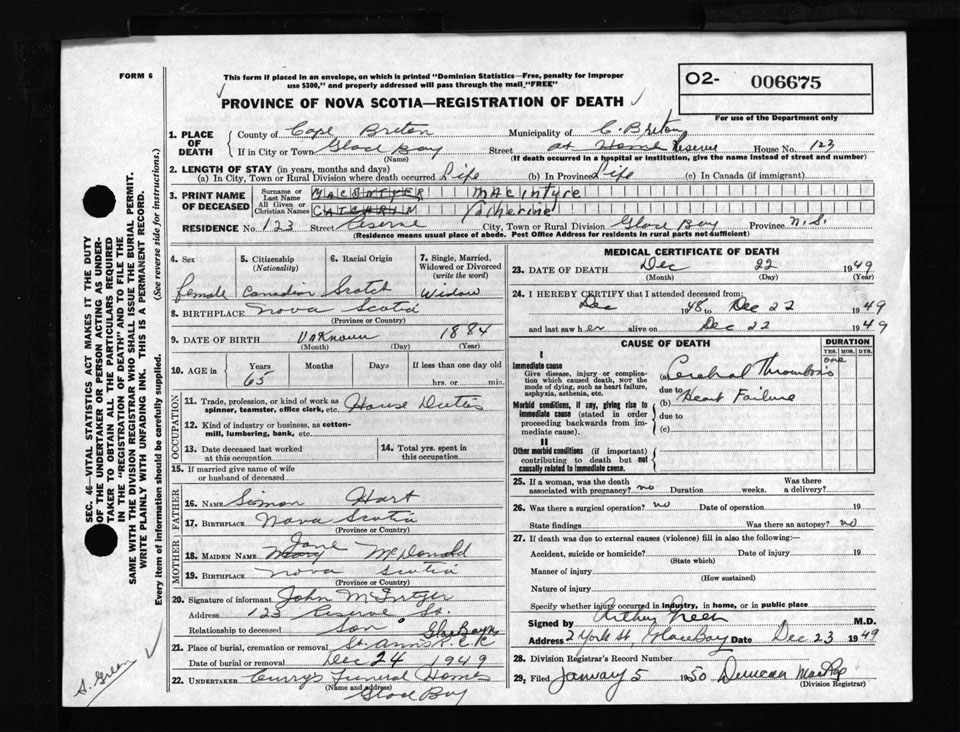 FORM 6
This form if placed in an envelope, on which is printed "Dominion Statistics—Free, penalty for improper
use $300," and properly addressed will pass through the mail "FREE"
PROVINCE OF NOVA SCOTIA—REGISTRATION OF DEATH
O2- 006675
For use of the Department only
1. PLACE OF DEATH
County of Cape Breton Municipality of C. Breton
If in City or Town Glace Bay Street at Home Reserve House No. 123
(Name) (If death occurred in a hospital or institution, give the name instead of street and number)
2. LENGTH OF STAY (in years, months and days)
(a) In City, Town or Rural Division where death occurred Life (b) In Province Life (c) In Canada (if immigrant)
3. PRINT NAME OF DECEASED
Surname or Last Name MacIntyre
All Given or Christian Names Katherine
RESIDENCE No. 123 Street Reserve City, Town or Rural Division Glace Bay Province N.S.
(Residence means usual place of abode. Post Office Address for residents in rural parts not sufficient)
4. Sex 5. Citizenship (Nationality) 6. Racial Origin 7. Single, Married, Widowed or Divorced (write the word)
female Canadian Scotch Widow
8. BIRTHPLACE Nova Scotia
(Province or Country)
9. DATE OF BIRTH Unknown 1884
(Month) (Day) (Year)
10. AGE in Years Months Days If less than one day old
65 hrs. or min.
OCCUPATION
11. Trade, profession, or kind of work as spinner, teamster, office clerk, etc. House Duties
12. Kind of industry or business, as cotton-mill, lumbering, bank, etc.
13. Date deceased last worked at this occupation
14. Total yrs. spent in this occupation
15. If married give name of wife or husband of deceased
FATHER
16. NAME Simon Hart
17. BIRTHPLACE Nova Scotia
(Province or Country)
MOTHER
18. MAIDEN NAME Mary Jane McDonald
19. BIRTHPLACE Nova Scotia
(Province or Country)
20. Signature of informant John
Address 123 Reserve St.
Relationship to deceased Son Glace Bay
21. Place of burial, cremation or removal St. Anns R.C.
Date of burial or removal Dec 24 1949
22. UNDERTAKER Curry's Funeral Homes
(Name and address)
Glace Bay
MEDICAL CERTIFICATE OF DEATH
23. DATE OF DEATH Dec 22 1949
(Month) (Day) (Year)
24. I HEREBY CERTIFY that I attended deceased from:
Dec 1948 to Dec 22 1949
and last saw her alive on Dec 22 1949
CAUSE OF DEATH DURATION
YRS. MOS. DYS.
I
Immediate cause
Give disease, injury or complication which caused death, NOT the mode of dying, such as heart failure, asphyxia, asthenia, etc.
(a) Cerebral Thrombosis one
due to
Morbid conditions, if any, giving rise to immediate cause (stated in order proceeding backwards from immediate cause).
(b) Heart Failure
due to
(c)
II
Other morbid conditions (if important) contributing to death but not causally related to immediate cause.
25. If a woman, was the death associated with pregnancy? no Duration weeks. Was there a delivery?
26. Was there a surgical operation? no Date of operation 19
State findings Was there an autopsy? no
27. If death was due to external causes (violence) fill in also the following:—
Accident, suicide or homicide? Date of injury 19
(State which)
Manner of injury
(How sustained)
Nature of injury
Specify whether injury occurred in industry, in home, or in public place
Signed by Arthur Green M.D.
Address 2 York St, Glace Bay Date Dec 23 1949
28. Division Registrar's Record Number
29. Filed January 5 1950
(Division Registrar)
SEC. 46—VITAL STATISTICS ACT MAKES IT THE DUTY
OF THE UNDERTAKER OR PERSON ACTING AS UNDERTAKER TO OBTAIN ALL THE PARTICULARS REQUIRED
IN THE "REGISTRATION OF DEATH" AND TO FILE THE
SAME WITH THE DIVISION REGISTRAR WHO SHALL ISSUE THE BURIAL PERMIT.
WRITE PLAINLY WITH UNFADING INK. THIS IS A PERMANENT RECORD.
Every item of information should be carefully supplied. (See reverse side for instructions.)
S. Green